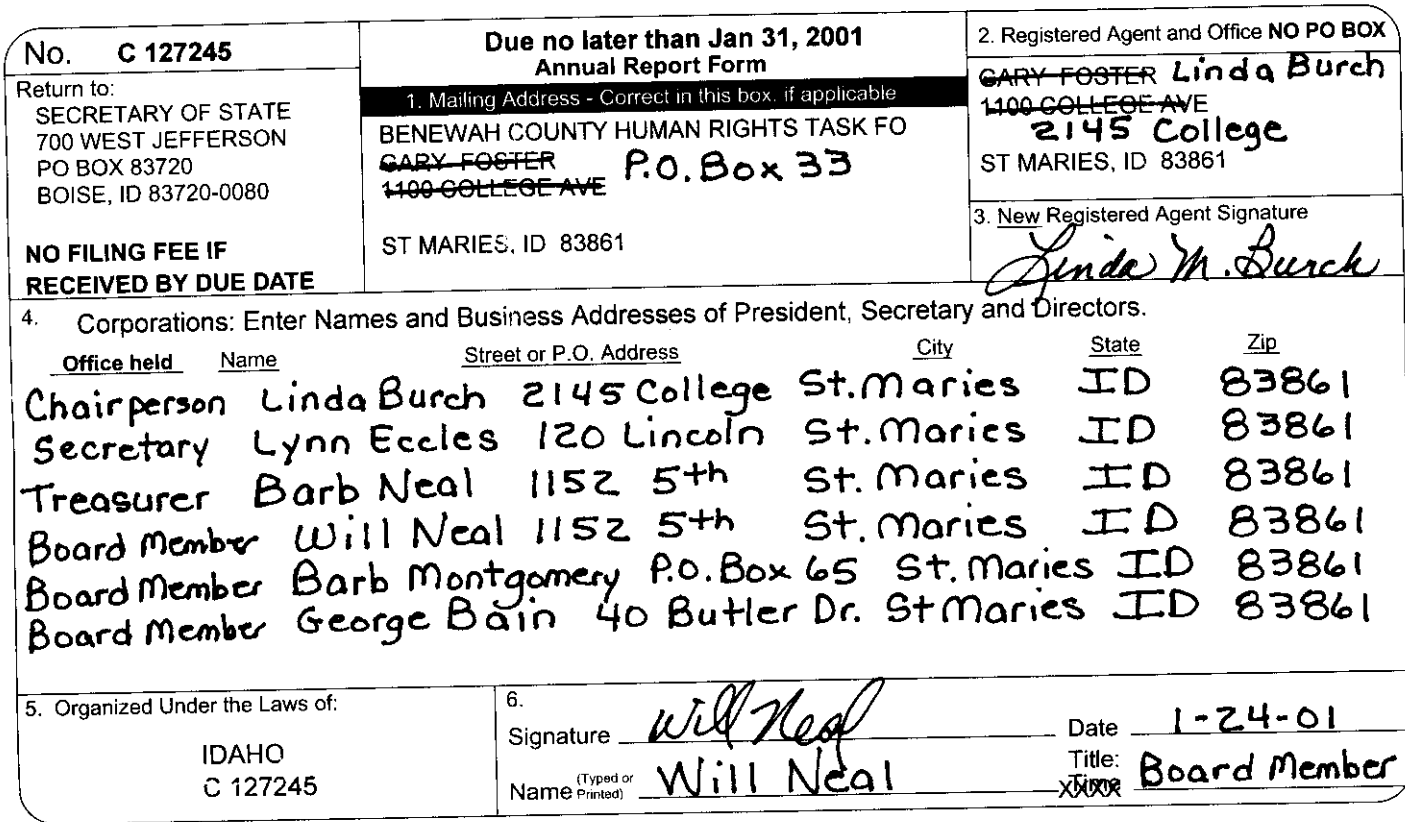 No. C 127245
Return to:
SECRETARY OF STATE
700 WEST JEFFERSON
PO BOX 83720
BOISE, ID 83720-0080
NO FILING FEE IF
RECEIVED BY DUE DATE
Due no later than Jan 31, 2001
Annual Report Form
1. Mailing Address - Correct in this box, if applicable
BENEWAH COUNTY HUMAN RIGHTS TASK FO
GARY FOSTER
1100 COLLEGE AVE
P.O. Box 33
ST MARIES, ID 83861
2. Registered Agent and Office NO PO BOX
GARY FOSTER Linda Burch
1100 COLLEGE AVE
2145 College
ST MARIES, ID 83861
3. New Registered Agent Signature
Linda M. Burch
4. Corporations: Enter Names and Business Addresses of President, Secretary and Directors.
Office held Name Street or P.O. Address City State Zip
Chairperson Linda Burch 2145 College St. Maries ID 83861
Secretary Lynn Eccles 120 Lincoln St. Maries ID 83861
Treasurer Barb Neal 1152 5th St. Maries ID 83861
Board Member Will Neal 1152 5th St. Maries ID 83861
Board Member Barb Montgomery P.O. Box 65 St. Maries ID 83861
Board Member George Bain 40 Butler Dr. St Maries ID 83861
5. Organized Under the Laws of:
IDAHO
C 127245
6.
Signature Will Neal Date 1-24-01
Name (Typed or Printed) Will Neal Title: Board Member